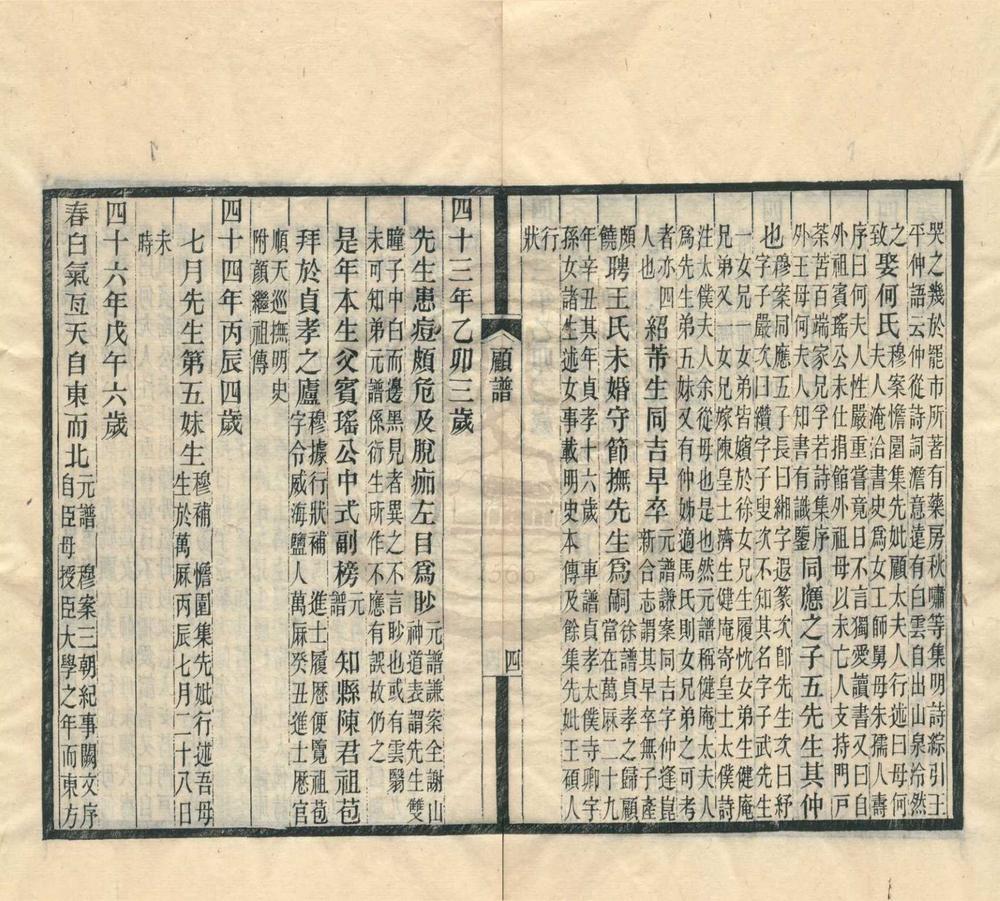 哭之幾於罷市所著有藥房秋嘯等集明詩綜引王
平仲語云仲從詩詞澹意遠有白雲自出山泉泠然
之致娶何氏穆案憺園集先妣顧太夫人行述曰母何
夫人淹洽書史為女工師舅母朱孺人壽
序曰何夫人性嚴重嘗竟日不言獨愛讀書又曰自
外祖賓瑤公未仕捐館外祖母以未亡人支持門戸
茶苦百端家兄孚若詩集序
外王母何夫人知書有識鑒同應之子五先生其仲
也穆案同應五子長曰緗字遐篆次卽先生次曰紓
字子嚴次曰纘字子叟次不知其名字子武先生
一女兄一女弟皆嬪於徐女兄生履忱女弟生健庵
兄弟又一女兄嫁陳皇士濟生健庵寄皇士太僕詩
注太僕夫人余從母也是也然元譜稱健庵太夫人
為先生弟五妹又有仲姊適馬氏則女兄弟之可考
者亦四
人也紹芾生同吉早卒元譜謙案同吉字仲逢崑
新合志謂其早卒無子產
頗饒聘王氏未婚守節撫先生為嗣徐譜貞孝之歸顧
當在萬厤二十九
年辛丑其年貞孝年十六歲車譜貞孝太僕寺卿宇
孫女諸生述女事載明史本傳及餘集先妣王碩人
行
狀
顧譜
四
四十三年乙卯三歲
先生患痘頗危及脫痂左目為眇元譜謙案全謝山
神道表謂先生雙
瞳子中白而邊黑見者異之不言眇也或有雲翳
未可知弟元譜係衍生所作不應有誤故仍之
是年本生父賓瑤公中式副榜元
譜知縣陳君祖苞
拜於貞孝之廬穆據行狀補進士履歴便覽祖苞
字令威海鹽人萬厤癸丑進士厯官
順天巡撫明史
附顏繼祖傳
四十四年丙辰四歲
七月先生第五妹生穆補憺園集先妣行述吾母
生於萬厤丙辰七月二十八日
未
時
四十六年戊午六歲
春白氣亙天自東而北元譜穆案三朝紀事闕文序
自臣母授臣大學之年而東方